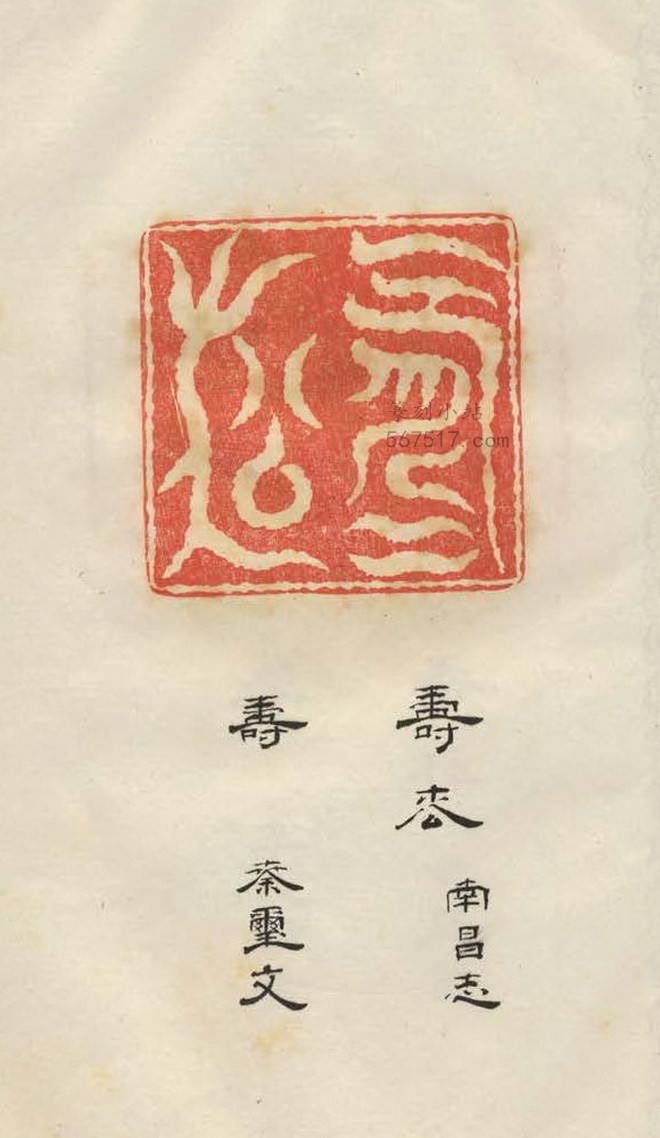 壽枩
篆刻小站
567517.com
壽枩 南昌志
壽 秦璽文